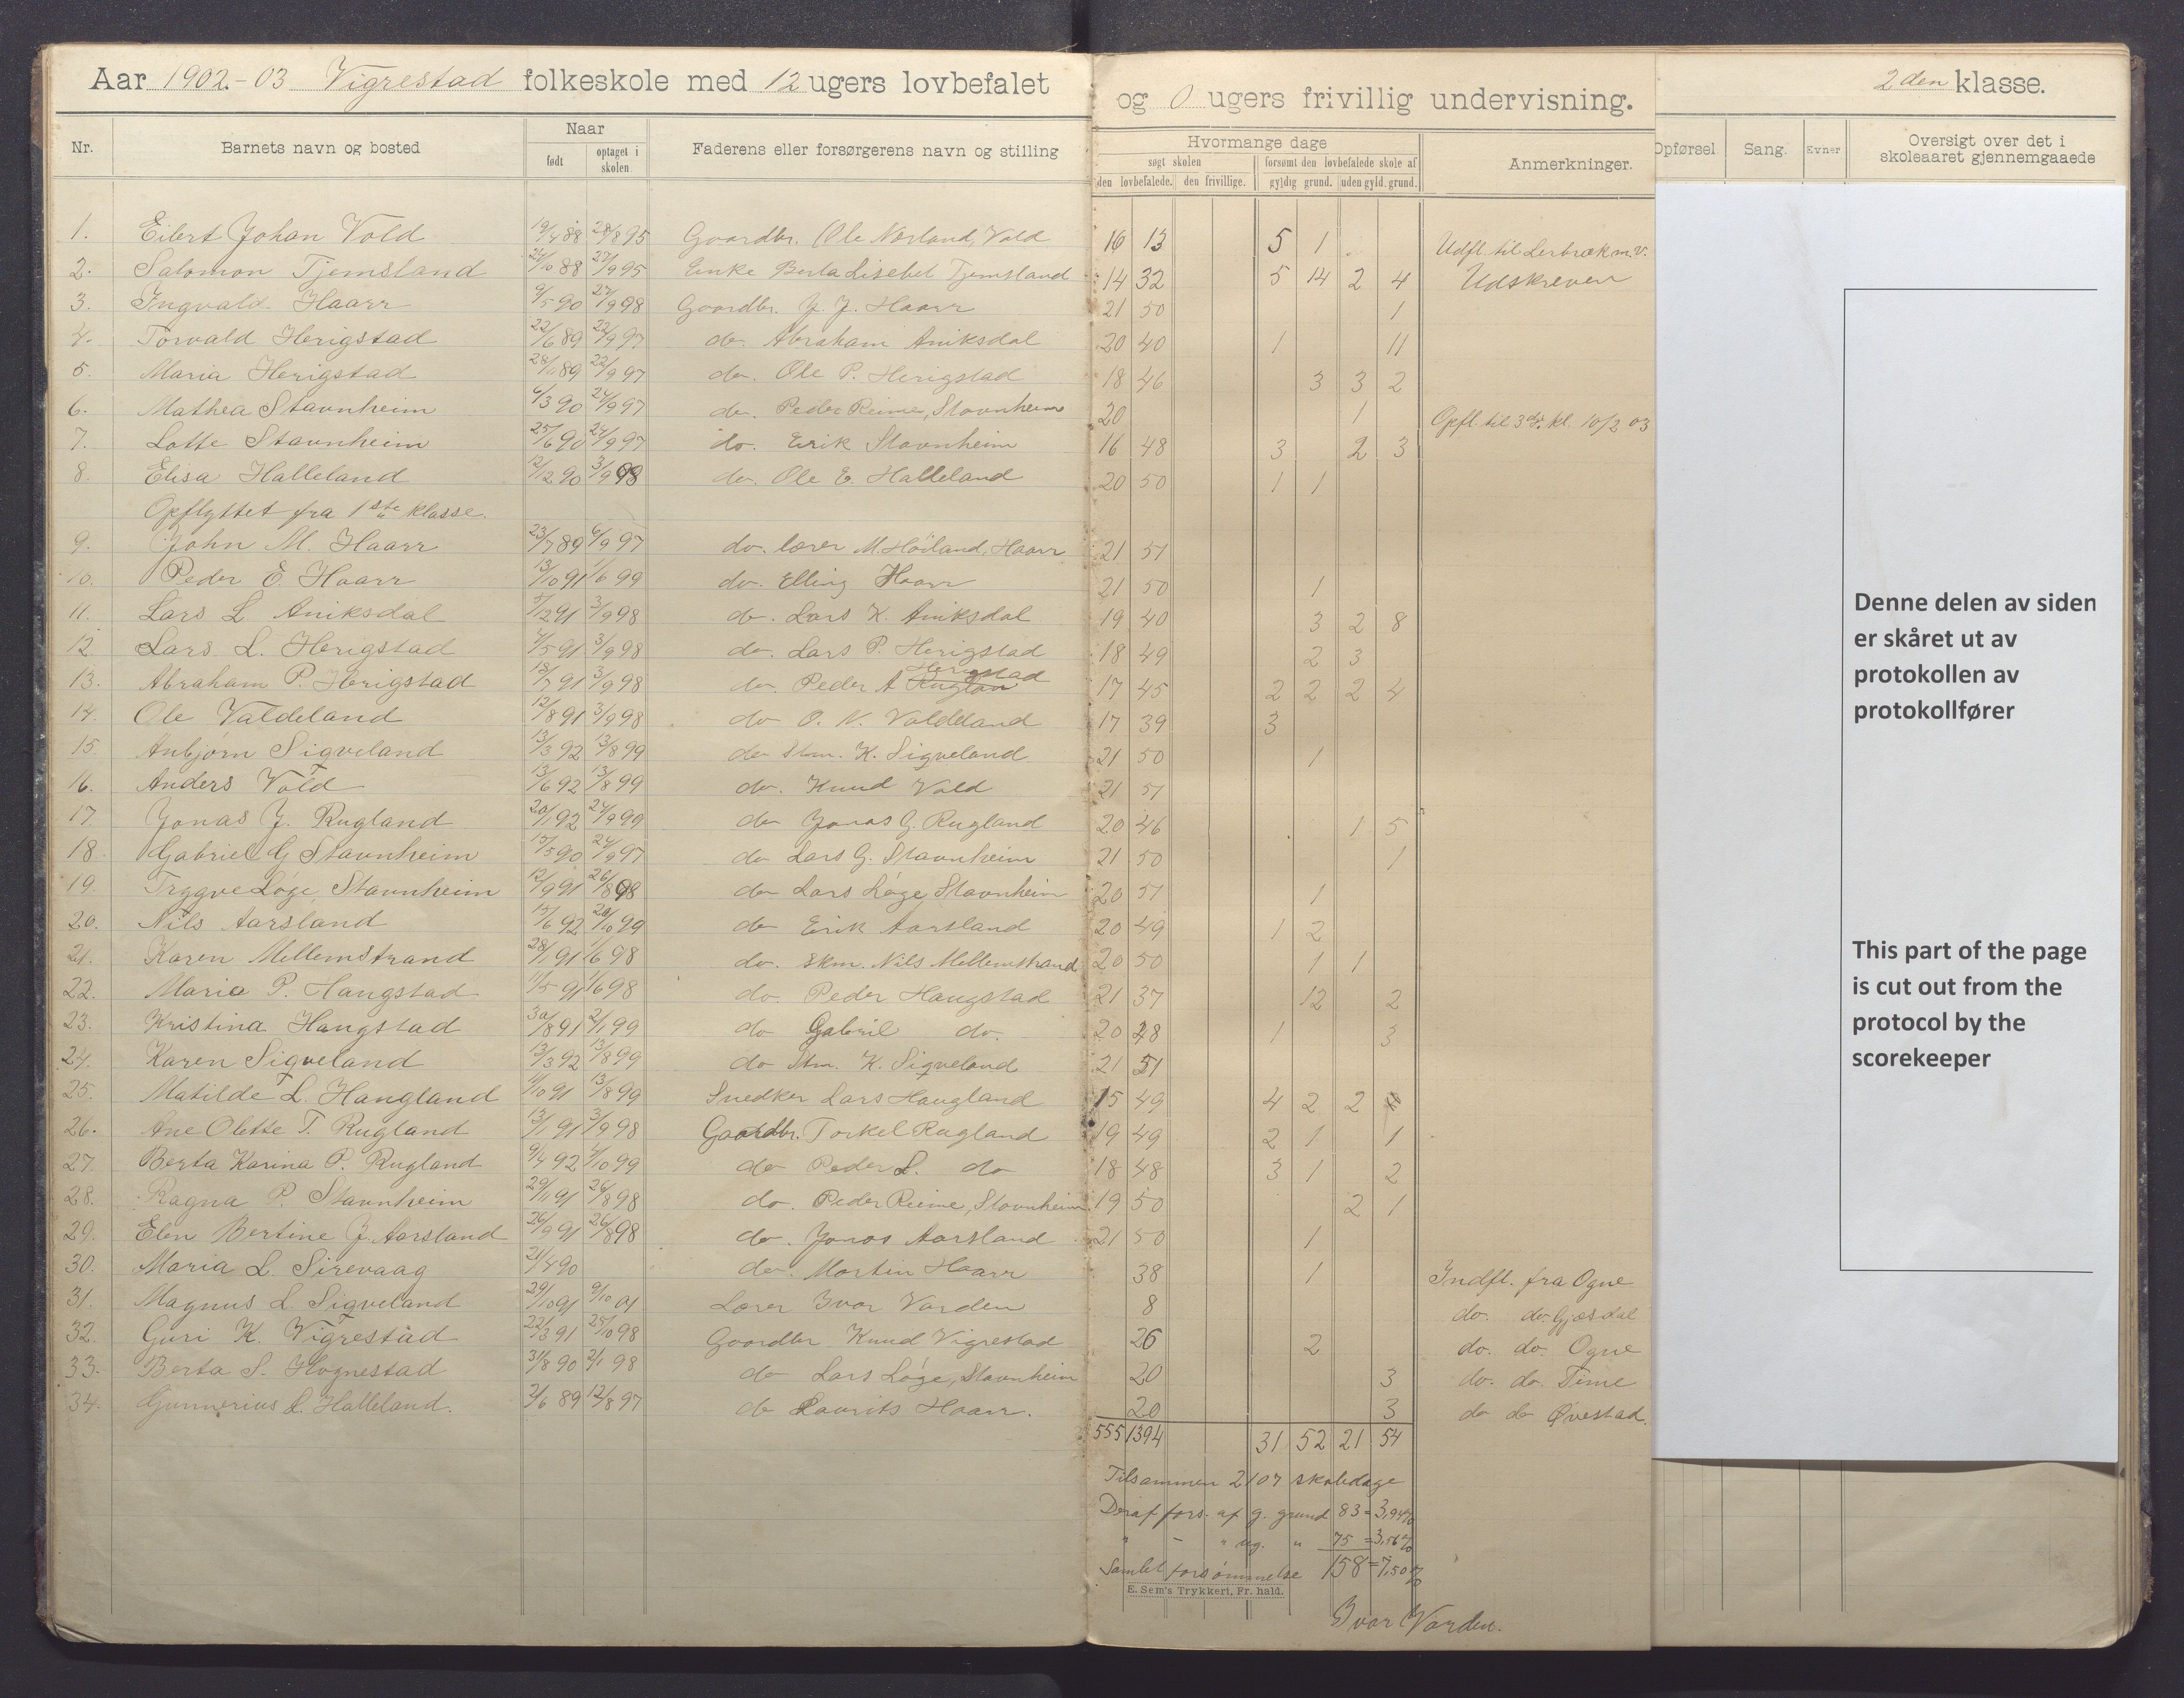 Aar 1902.-03 Vigrestad folkeskole med 12 ugers lovbefalet og 0 ugers frivillig undervisning. 2den klasse.
Nr. Barnets navn og bosted Naar født optaget i skolen. Faderens eller forsørgerens navn og stilling Hvormange dage søgt skolen den lovbefalede. den frivillige. forsømt den lovbefalede skole af gyldig grund. uden gyld. grund. Anmerkninger. Opførsel Sang. Evner Oversigt over det i skoleaaret gjennemgaaede
1. Eilert Johan Vold 19/4 88 28/8 95 Gaardbr. Ole Nærland, Vold 16 13 5 1 Udfl. til Lerbræk m.v.
2. Salomon Tjemsland 24/10 88 27/9 95 Enke Berta Lisebet Tjemsland 14 32 5 14 2 4 Udskreven
3. Ingvald Haarr 9/5 90 27/9 98 Gaardbr. J. J. Haarr 21 50 1
4. Torvald Herigstad 22/6 89 22/9 97 do. Abraham Aniksdal 20 40 1 11
5. Maria Herigstad 24/1 89 22/9 97 do. Ole P. Herigstad 18 46 3 3 2
6. Mathea Stavnheim 6/3 90 24/9 97 do. Peder Reime, Stavnheim 20 1 Opfl. til 3die kl. 10/2 03
7. Lotte Stavnheim 25/6 90 24/9 97 do. Erik Stavnheim 16 48 3 2 3
8. Elisa Halleland 12/12 90 3/9 98 do. Ole E. Halleland 20 50 1 1
Opflyttet fra 1ste klasse.
9. John M. Haarr 23/7 89 6/9 97 do. lærer M. Höiland, Haarr 21 51
10. Peder E. Haarr 13/10 91 1/6 99 do. Elling Haarr 21 50 1
11. Lars L. Aniksdal 5/12 91 3/9 98 do. Lars K. Aniksdal 19 40 3 2 8
12. Lars L. Herigstad 4/5 91 3/9 98 do. Lars P. Herigstad 18 49 2 3
13. Abraham P. Herigstad 18/7 91 3/9 98 do. Peder A. Herigstad 17 45 2 2 2 4
14. Ole Valdeland 12/8 91 3/9 98 do O. N. Valdeland 17 39 3
15. Anbjørn Sigveland 13/3 92 13/8 99 do Stm. K. Sigveland 21 50 1
16. Anders Vold 13/6 92 13/8 99 do. Knud Vold 21 51
17. Jonas J. Rugland 20/1 92 24/9 99 do Jonas G. Rugland 20 46 1 5
18. Gabriel G Stavnheim 15/5 90 24/9 97 do Lars G. Stavnheim 21 50 1
19. Trygve Løge, Stavnheim 12/9 91 26/8 98 do Lars Løge, Stavnheim 20 51 1
20. Nils Aarsland 15/6 92 20/10 99 do Erik Aarsland 20 49 1 2
21. Karen Mellemstrand 28/1 91 1/6 98 do. Skm. Nils Mellemstrand 20 50 1 1
22. Maria P. Haugstad 11/5 91 1/6 98 do. Peder Haugstad 21 37 12 2
23. Kristina Haugstad 30/8 91 2/1 99 do Gabril do. 20 48 1 3
24. Karen Sigveland 13/3 92 13/8 99 do Stm. K. Sigveland 21 51
25. Matilde L. Haugland 4/10 91 13/8 99 Snedker Lars Haugland 15 49 4 2 2
26. Ane Olette T. Rugland 13/1 91 3/9 98 Gaardbr. Torkel Rugland 19 49 2 1 1
27. Berta Karina P. Rugland 9/4 92 4/10 99 do Peder L. do 18 48 3 1 2
28. Ragna P. Stavnheim 29/11 91 26/8 98 do. Peder Reime, Stavnheim 19 50 2 1
29. Elen Bertine J. Aarsland 26/9 91 26/8 98 do. Jonas Aarsland 21 50 1
30. Maria L. Sirevaag 21/4 90 do. Martin Haarr 38 1 Indfl. fra Ogne
31. Magnus L. Sigveland 29/10 91 9/10 01 Lærer Ivar Varden 8 do. do. Gjæsdal
32. Guri K. Vigrestad 22/3 91 25/10 98 Gaardbr Knud Vigrestad 26 2 do. do. Ogne
33. Berta S. Hognestad 31/8 90 2/1 98 do Lars Løge, Stavnheim 20 3 do. do. Time
34. Gunnerius L. Halleland. 2/6 89 12/8 97 do Laurits Haarr. 20 3 do do Øvestad.
555 1394 31 52 21 54
Tilsammen 2107 skoledage
Deraf fors. af g. grund 83 = 3,94%
" - " ug. " 75 = 3,56%
Samlet forsømmelse 158 = 7,50%
E. Sem's Trykkeri, Fr. hald.
Ivar Varden.
Denne delen av siden
er skåret ut av
protokollen av
protokollfører
This part of the page
is cut out from the
protocol by the
scorekeeper